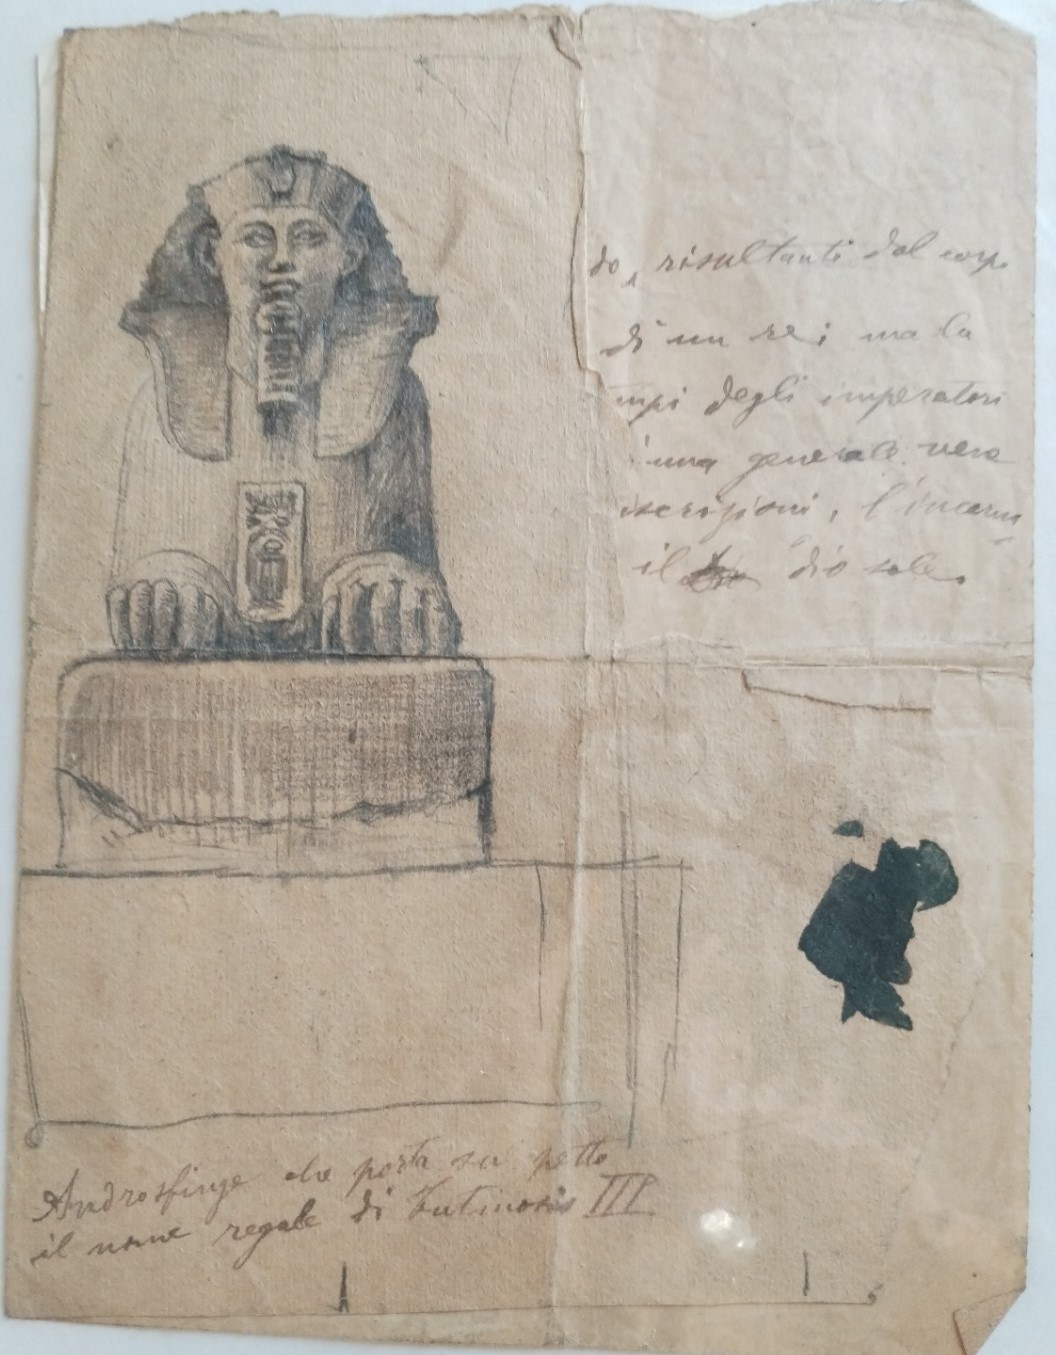 do, risultanti dal corp
di un re; ma la
mpi degli imperatori
una generale vera
iscrizioni, l'incarn
il dio sole.
Androsfinge che porta su petto
il nome regale di Tutmosis III